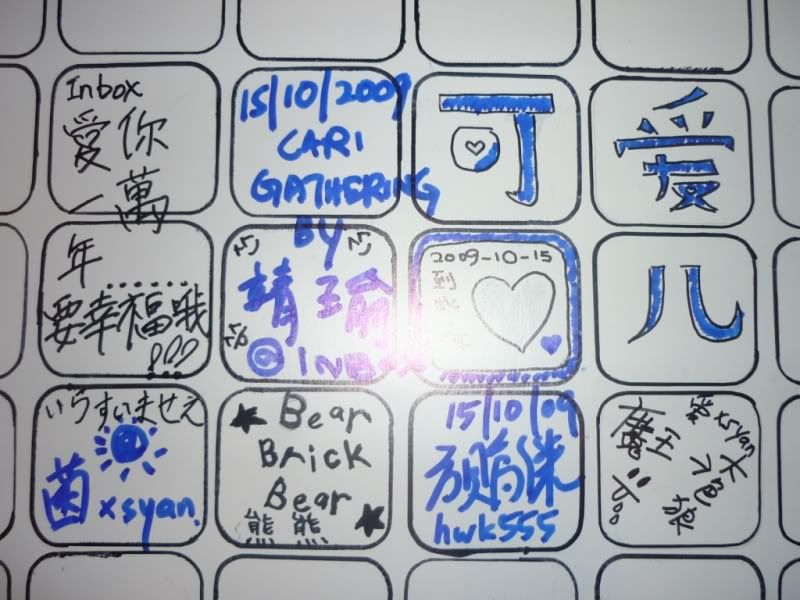 Inbox
愛你
一萬
年......
要幸福哦
15/10/2009
CARI
GATHERING
BY
靖瑜
@INB
可
爱
2009-10-15
到
儿
いらすいませえ
菌 xsyan.
Bear
Brick
Bear
熊 熊
15/10/09
hwk555
魔王
爱xsyan
大色狼